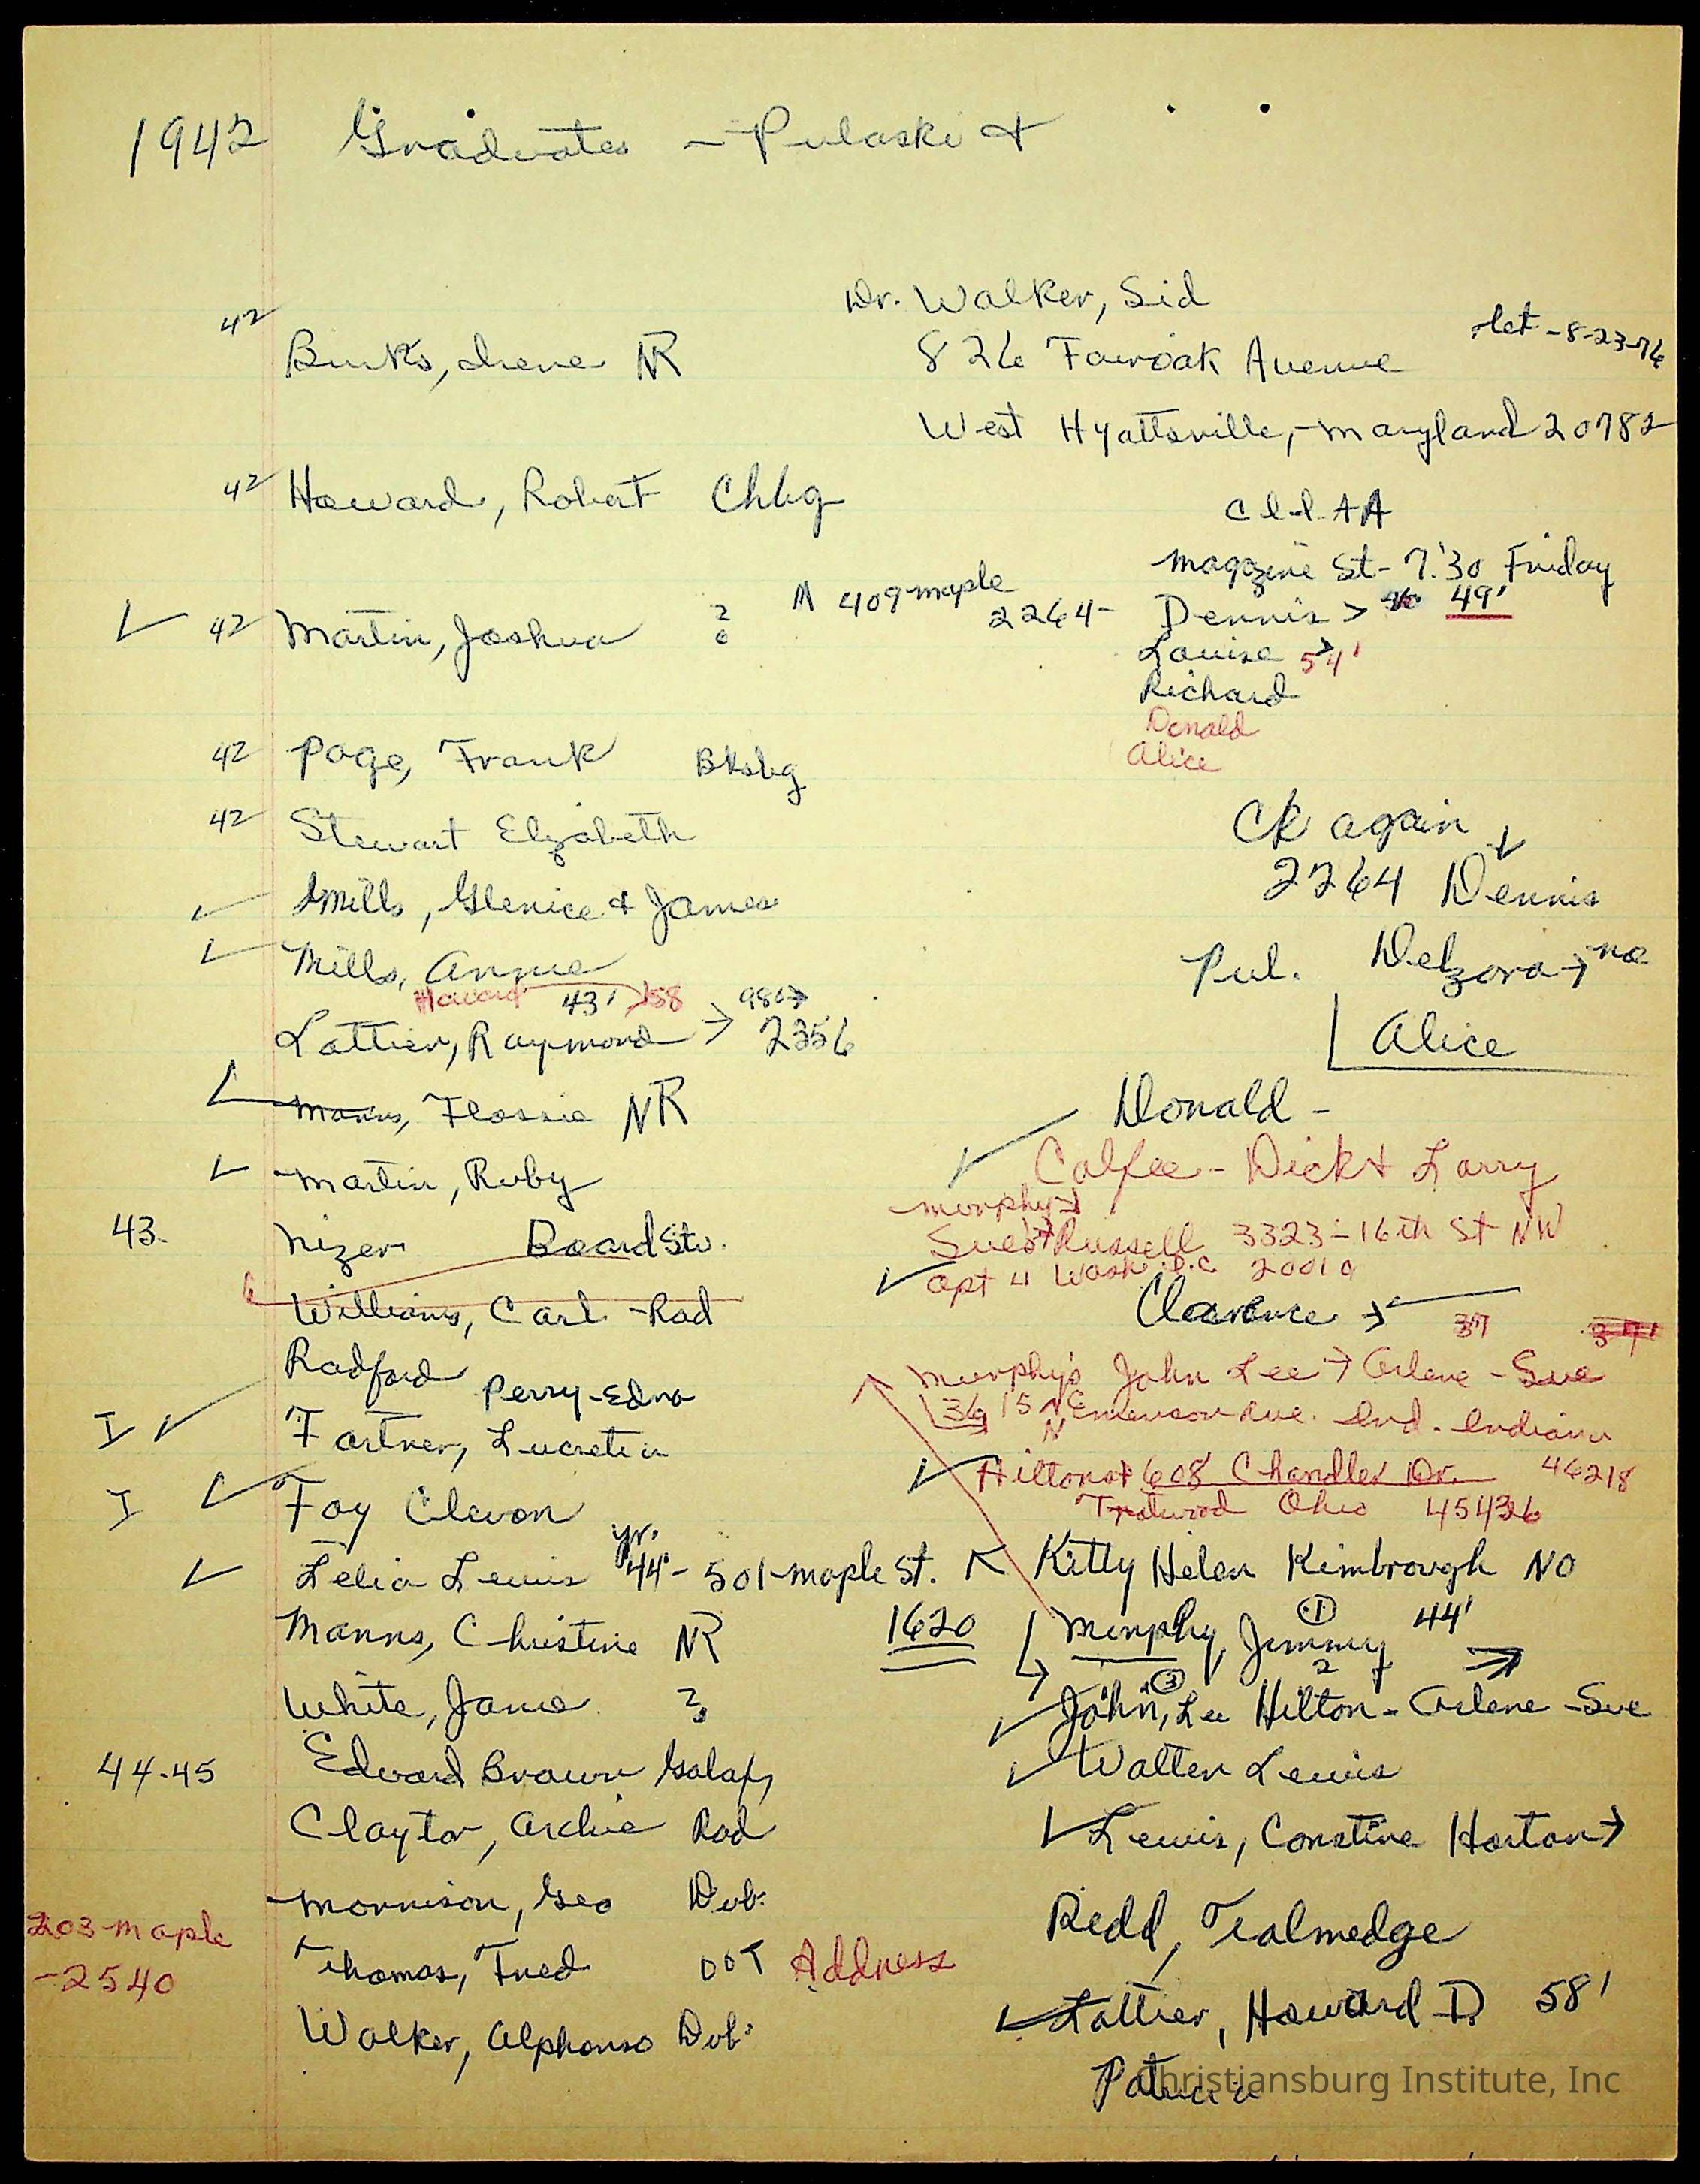 1942 Graduates - Pulaski &
Dr. Walker, Sid
826 Fairoak Avenue
let - 8-23-76
West Hyattsville, Maryland 20782
42 Burks, Irene NR
42 Howard, Robert Chbg
C I I A A
Magzine St - 7:30 Friday
42 Martin, Joshua ?
N 409 maple
2264 - Dennis > 49'
Louise > 54'
Richard
Donald
Alice
42 Page, Frank Bksbg
42 Stewart Elizabeth
Mills, Glenice & James
Mills, Annie
Howard 43' 58
Lattier, Raymond → 2356
980
Manns, Flossie NR
Martin, Ruby
43. Nizer Board Stu.
Williams, Carl - Rad
Radford
Perry-Edna
I Fortner, Lucretia
I Foy Clevon
Lelia Lewis yr. 44' - 501 maple St.
Manns, Christine NR
White, Jame ?
44-45 Edward Brown Galax
Clayton, Archie Rad
Morrison, Geo Dub.
203 Maple
-2540
Thomas, Fred OOT Address
Walker, Alphonso Dub.
Ck again
2264 Dennis
Pul. Delzora → no
Alice
Donald -
Calfee - Dick & Larry
Murphy
Sue → Russell 3323 - 16th St NW
Apt 4 Wash. D.C. 20010
Clearence →
37 37'
Murphy's John Lee → Arlene - Sue
3615 N Emerson Ave. Ind. Indiana
46218
Hilton → 608 Chandler Dr.
Trotwood Ohio 45426
Kitty Helen Kimbrough NO
1620 Murphy, Jimmy ① 44'
2
③
John, Lee Hilton - Arlene - Sue
Walter Lewis
Lewis, Constine Horton →
Redd, Tralmedge
Lattier, Howard D 58'
Patricia
Christiansburg Institute, Inc